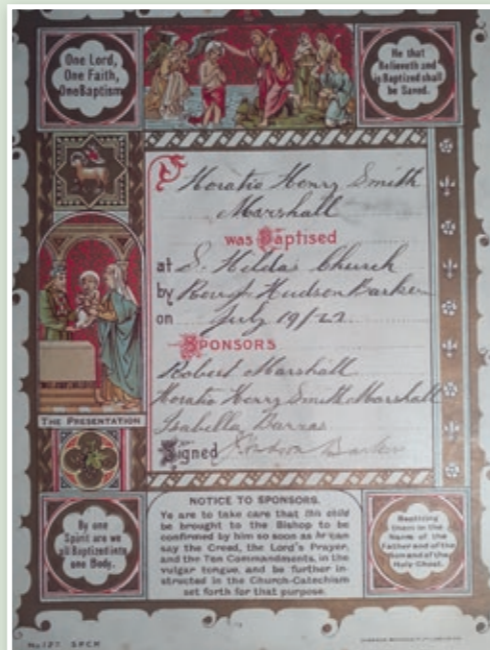 One Lord,
One Faith,
One Baptism
He that
Believeth and
is Baptized shall
be Saved.
Horatio Henry Smith
Marshall
was Baptised
at S. Hilda's Church
by Hudson Barker
on July 19/22
SPONSORS
Robert Marshall
Horatio Henry Smith Marshall
Isabella Barras
Signed Hudson Barker
THE PRESENTATION
By one
Spirit are we
all Baptized into
one Body.
NOTICE TO SPONSORS.
Ye are to take care that this child
be brought to the Bishop to be
confirmed by him so soon as he can
say the Creed, the Lord's Prayer,
and the Ten Commandments, in the
vulgar tongue, and be further in-
structed in the Church-Catechism
set forth for that purpose.
Baptizing
them in the
Name of the
Father and of the
Son and of the
Holy Ghost.
No 121 SPCK